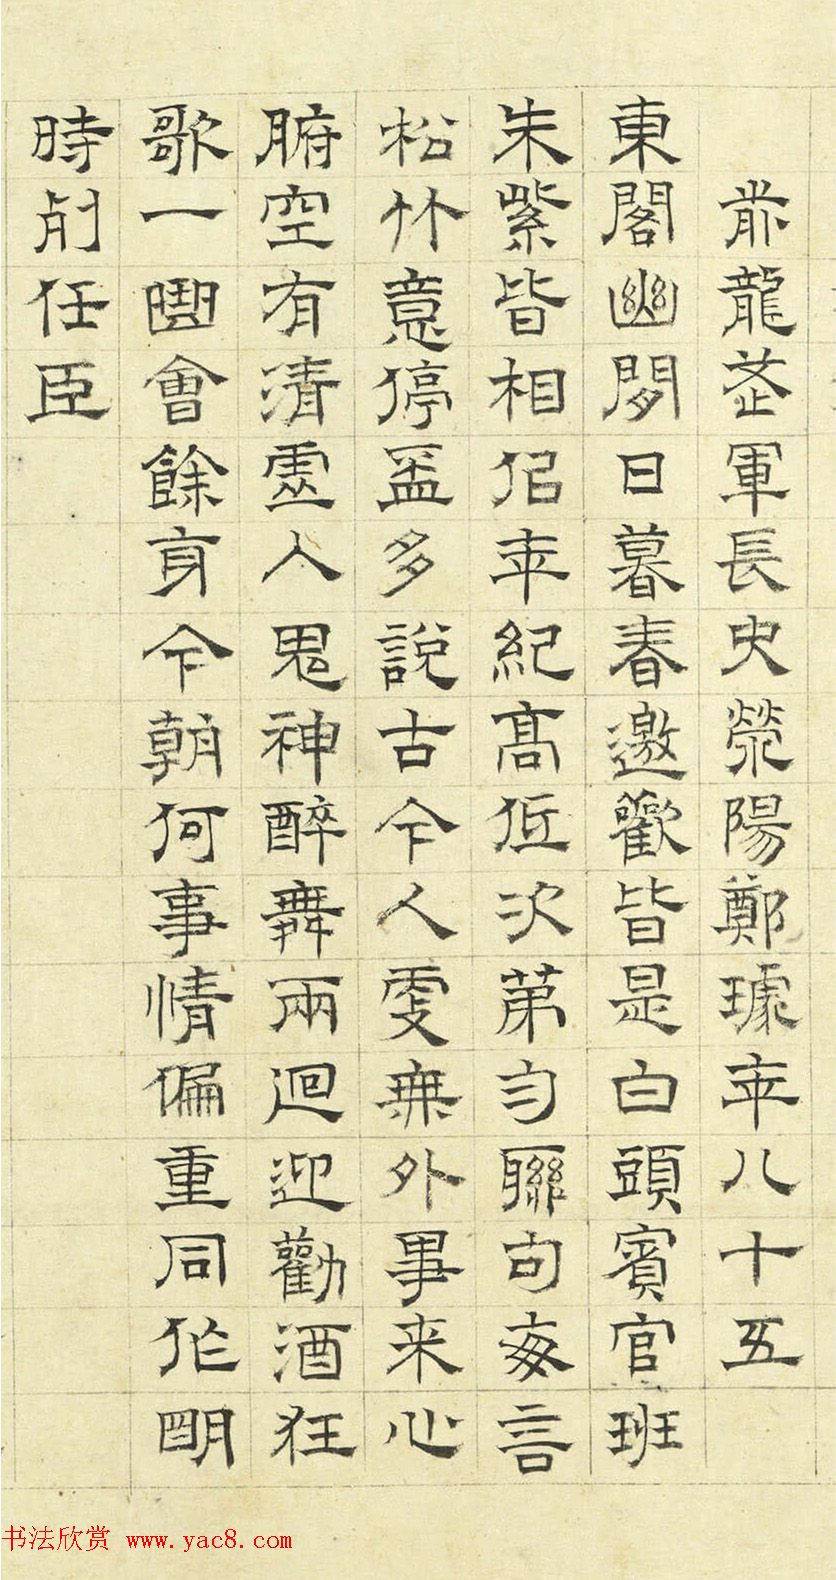 前龍武軍長史滎陽鄭璩年八十五
東閣幽閒日暮春邀歡皆是白頭賓官班
朱紫皆相佀年紀高低次第匀聯句每言
松竹意停盃多說古今人更無外事来心
腑空有清虛人思神醉舞兩迴迎勸酒狂
歌一曲會餘身今朝何事情偏重同作明
時列任臣
书法欣赏 www.yac8.com